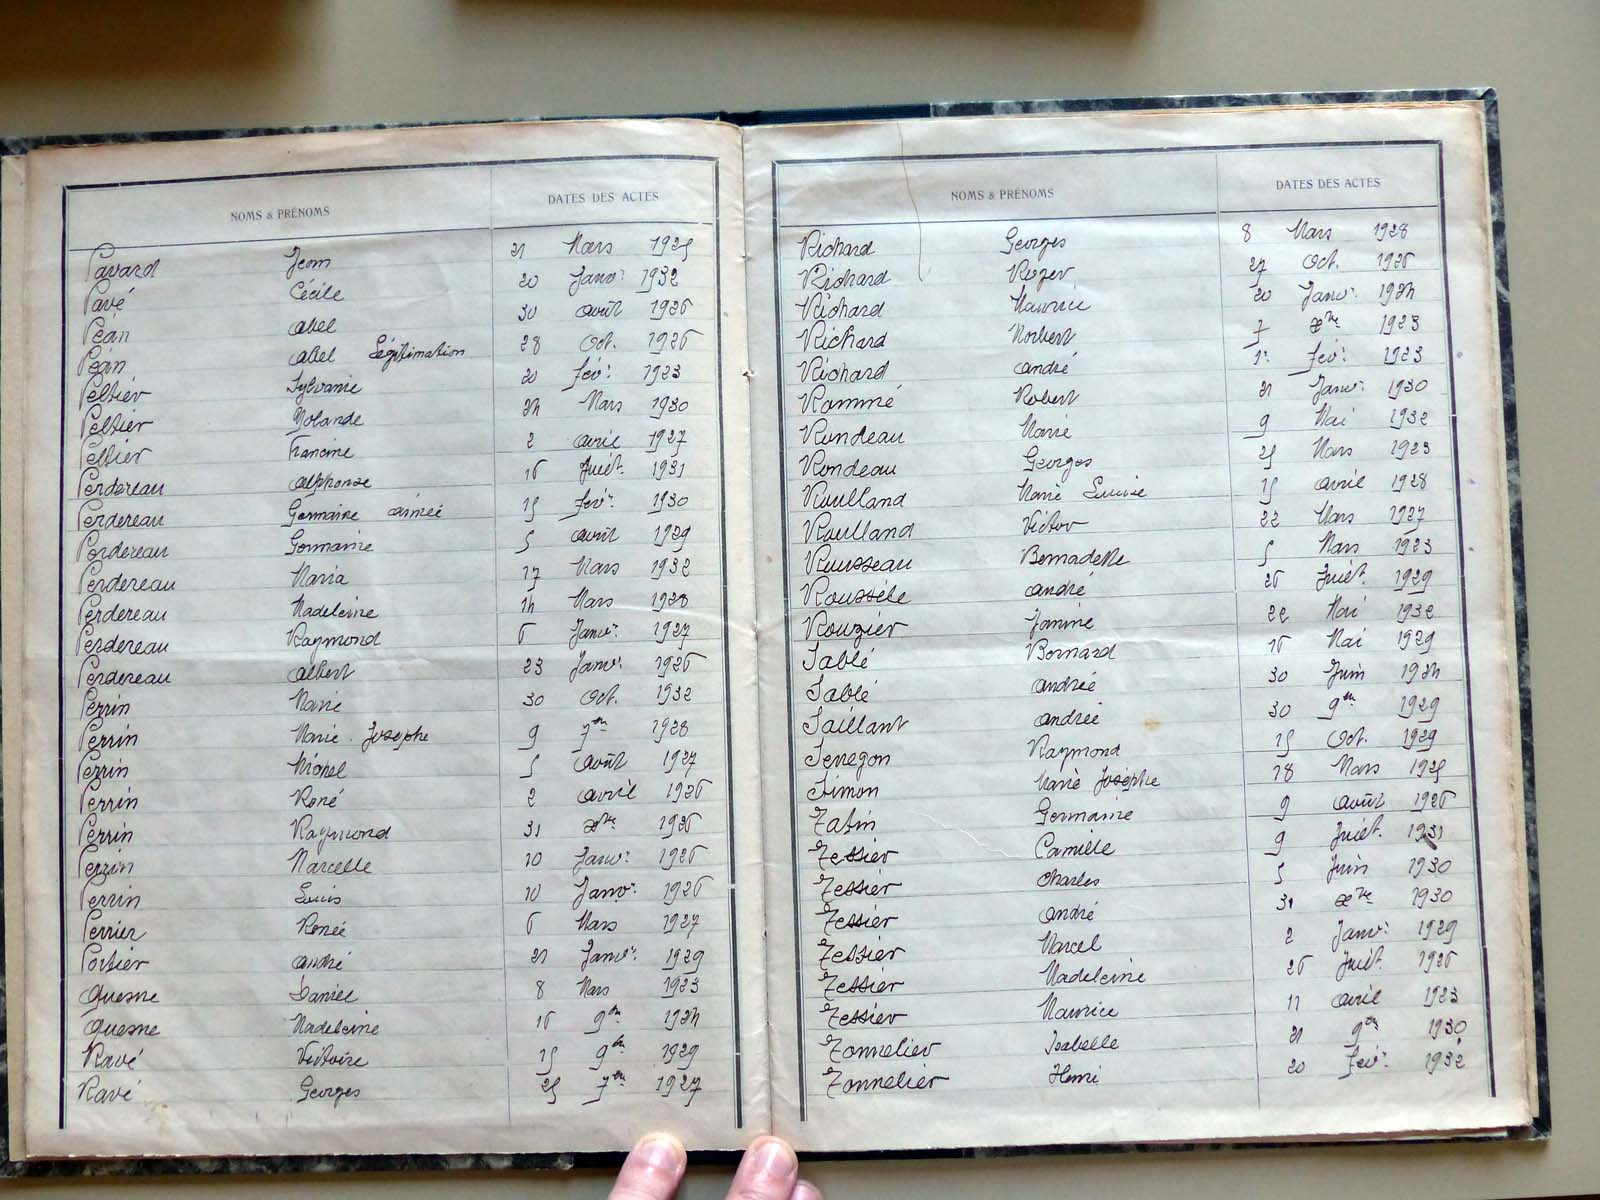 NOMS & PRÉNOMS DATES DES ACTES
Pavard Jean 21 Mars 1925
Pavé Cécile 20 Janv: 1932
Péan Abel 30 Août 1926
Péan Abel Légitimation 28 Oct. 1926
Peltier Sylvanie 20 Fév: 1923
Peltier Yolande 24 Mars 1930
Peltier Francine 2 Avril 1927
Perdereau Alphonse 16 Juiet. 1931
Perdereau Germaine Aimée 15 Fév: 1930
Perdereau Germaine 5 Août 1929
Perdereau Maria 17 Mars 1932
Perdereau Madeleine 14 Mars 1928
Perdereau Raymond 6 Janv: 1927
Perdereau Albert 23 Janv: 1926
Perrin Marie 30 Oct. 1932
Perrin Marie Josephe 9 7bre 1928
Perrin Michel 5 Août 1927
Perrin René 2 Avril 1926
Perrin Raymond 31 Xbre 1926
Perrin Marcelle 10 Janv: 1926
Perrin Louis 10 Janv: 1926
Perrier Renée 6 Mars 1927
Portier André 21 Janv: 1929
Quesne Daniel 8 Mars 1923
Quesne Madeleine 16 9bre 1924
Ravé Victoire 15 9bre 1929
Ravé Georges 25 7bre 1927
NOMS & PRÉNOMS DATES DES ACTES
Richard Georges 8 Mars 1928
Richard Roger 27 Oct. 1926
Richard Maurice 20 Janv: 1924
Richard Norbert 7 Xbre 1923
Richard André 1: Fév: 1923
Rommé Robert 21 Janv: 1930
Rondeau Marie 9 Mai 1932
Rondeau Georges 25 Mars 1923
Roulland Marie Louise 15 Avril 1928
Roulland Victor 22 Mars 1927
Rousseau Bernadette 5 Mars 1923
Roussèle André 26 Juiet. 1929
Rouzier Janine 22 Mai 1932
Sablé Bernard 16 Mai 1929
Sablé Andrée 30 Juin 1924
Saillant Andrée 30 9bre 1929
Senegon Raymond 15 Oct. 1929
Simon Marie Josèphe 18 Mars 1925
Tafin Germaine 9 Août 1926
Tessier Camille 9 Juiet. 1931
Tessier Charles 5 Juin 1930
Tessier André 31 Xbre 1930
Tessier Marcel 2 Janv: 1929
Tessier Madeleine 26 Juiet. 1926
Tessier Maurice 11 Avril 1923
Tonnelier Isabelle 21 9bre 1930
Tonnelier Henri 20 Fév: 1932